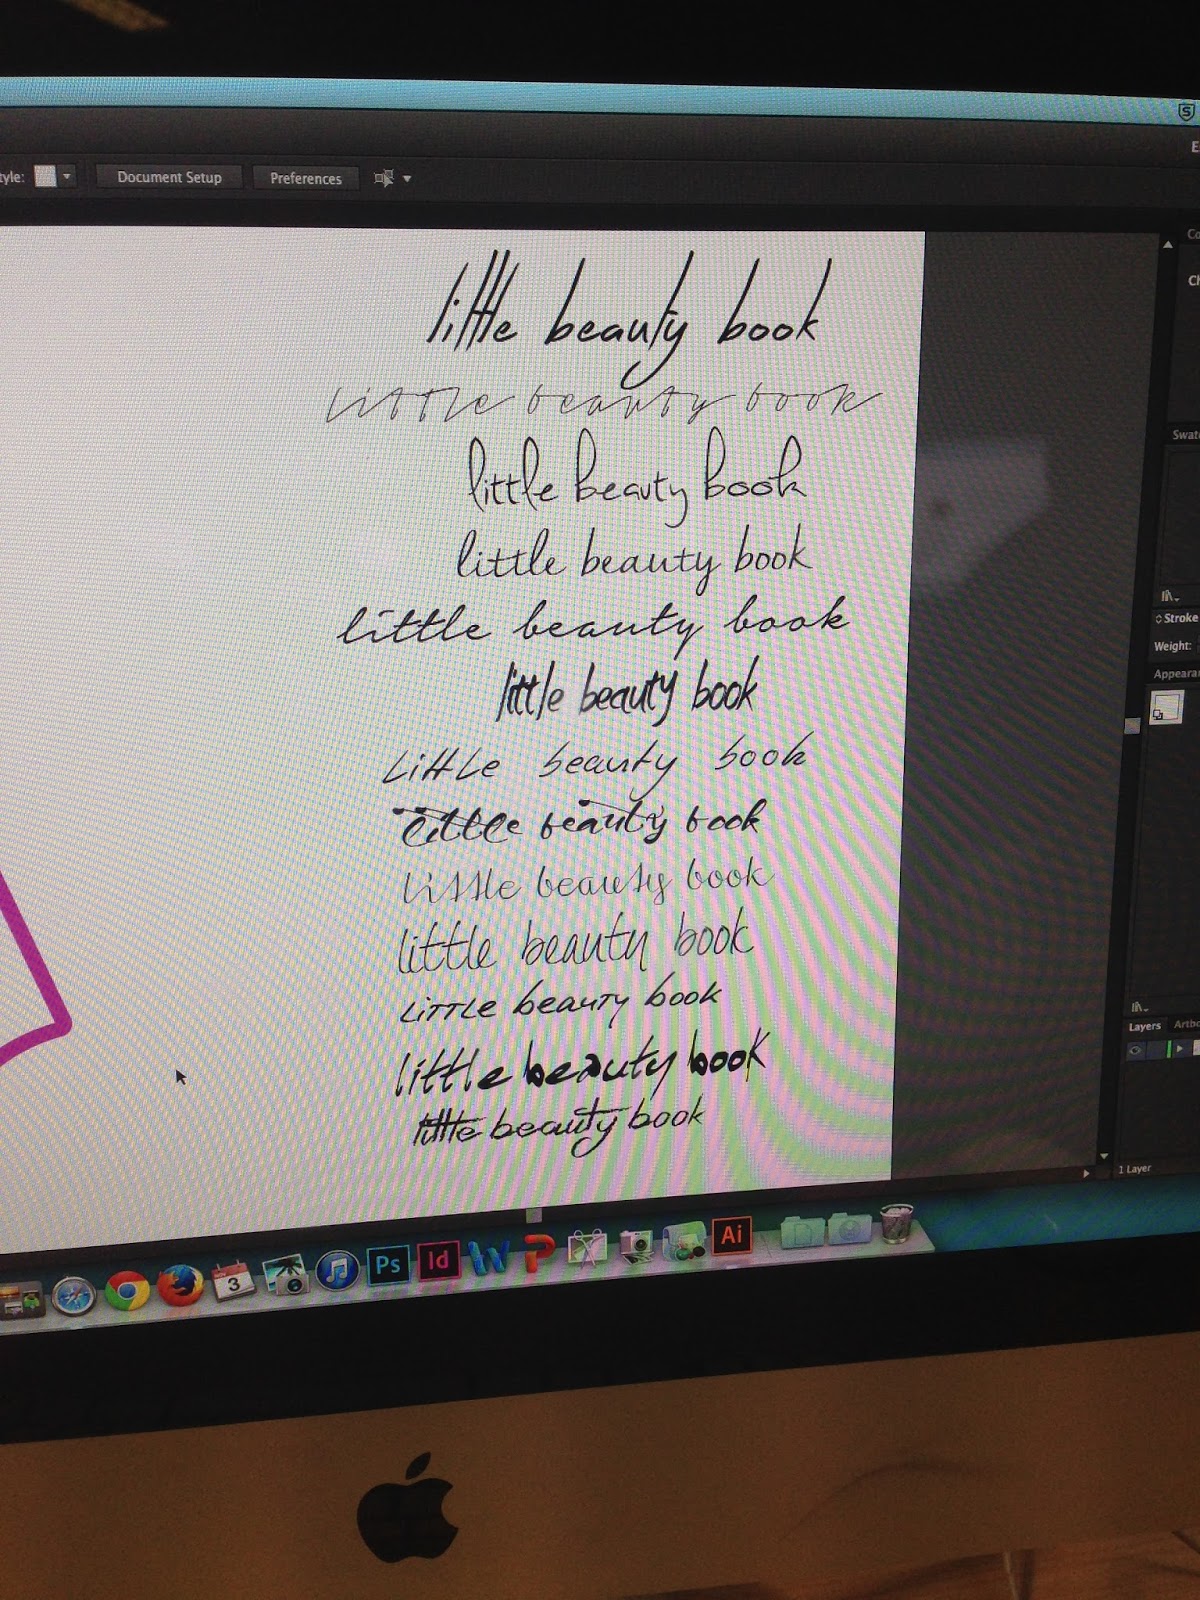 Document Setup Preferences
little beauty book
little beauty book
little beauty book
little beauty book
little beauty book
little beauty book
little beauty book
little beauty book
little beauty book
little beauty book
little beauty book
little beauty book
little beauty book
Stroke
Weight:
Layers
1 Layer
3 Ps Id Ai